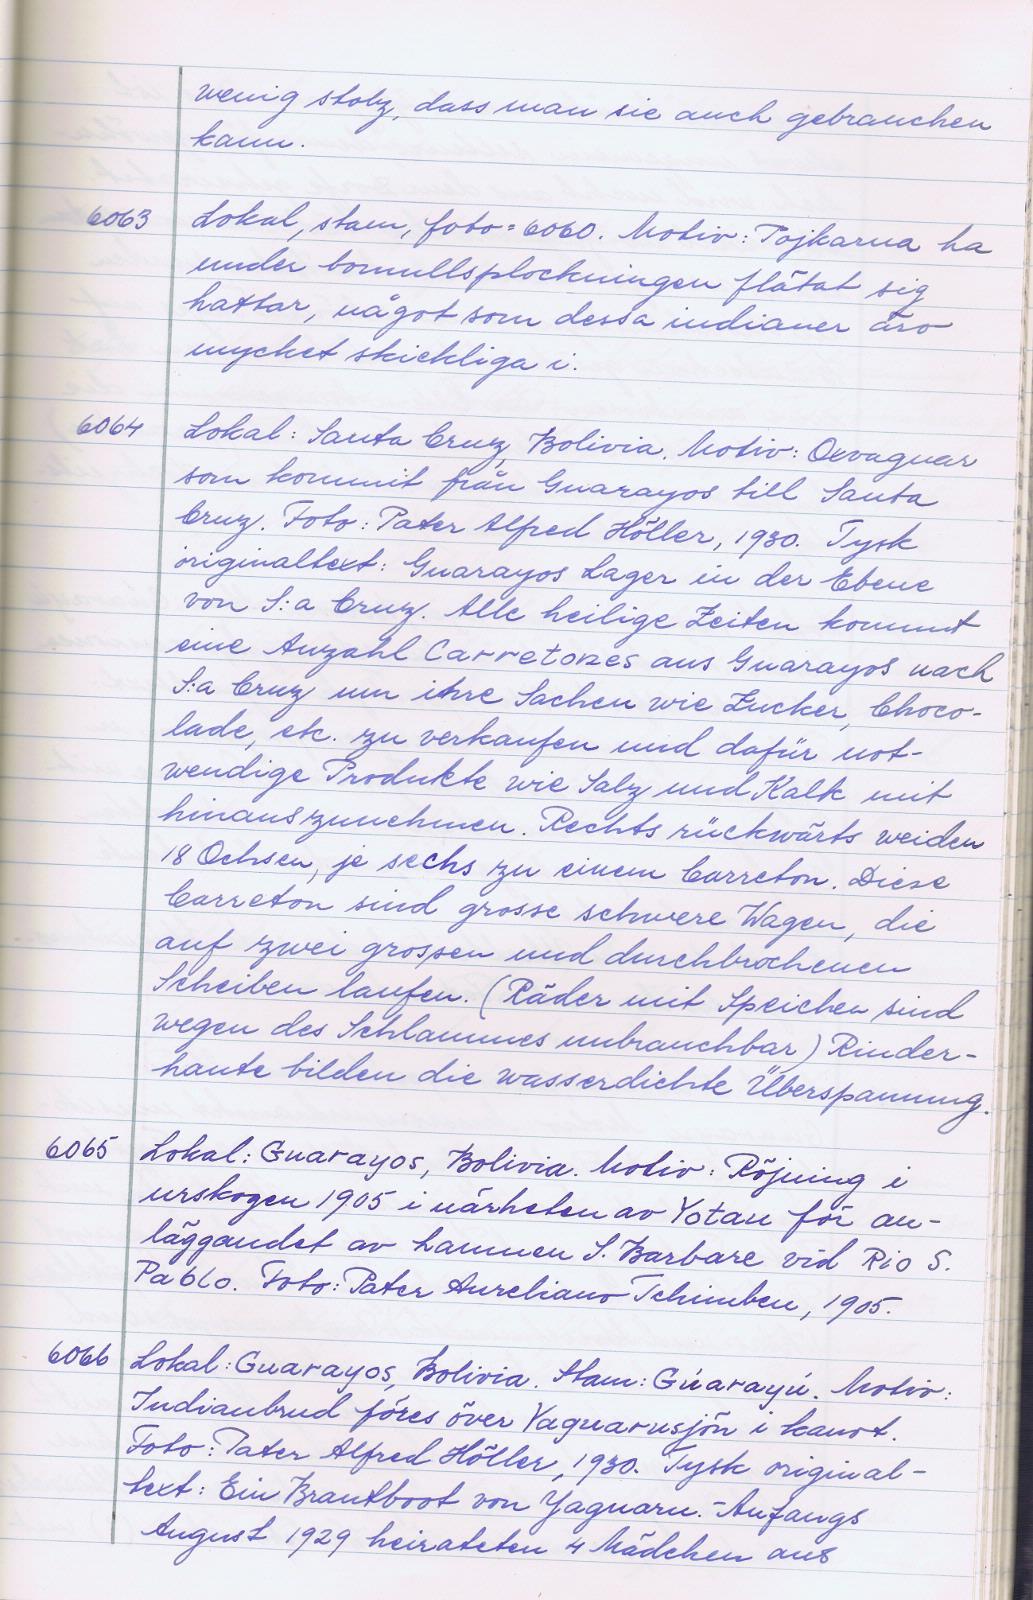 wenig stolz, dass man sie auch gebrauchen
kann.
6063 Lokal, stam, foto = 6060. Motiv: Pojkarna ha
under bomullsplockningen flätat sig
hattar, något som dessa indianer äro
mycket skickliga i.
6064 Lokal: Santa Cruz, Bolivia. Motiv: Oxvagnar
som kommit från Guarayos till Santa
Cruz. Foto: Pater Alfred Höller, 1930. Tysk
originaltext: Guarayos Lager in der Ebene
von S:a Cruz. Alle heilige Zeiten kommt
eine Anzahl Carretones aus Guarayos nach
S:a Cruz um ihre Sachen wie Zucker, Choco-
lade, etc. zu verkaufen und dafür not-
wendige Produkte wie Salz und Kalk mit
hinauszunehmen. Rechts rückwärts weiden
18 Ochsen, je sechs zu einem Carreton. Diese
Carreton sind grosse schwere Wagen, die
auf zwei grossen und durchbrochenen
Scheiben laufen. (Räder mit Speichen sind
wegen des Schlammes unbrauchbar) Rinder-
haute bilden die wasserdichte Überspannung.
6065 Lokal: Guarayos, Bolivia. Motiv: Röjning i
urskogen 1905 i närheten av Yotau för an-
läggandet av hamnen S. Barbare vid Rio S.
Pablo. Foto: Pater Aureliano Tchimben, 1905.
6066 Lokal: Guarayos, Bolivia. Stam: Guarayú. Motiv:
Indianbrud föres över Yaguarusjön i kanot.
Foto: Pater Alfred Höller, 1930. Tysk original-
text: Ein Brautboot von Yaguaru. - Anfangs
August 1929 heirateten 4 Mädchen aus